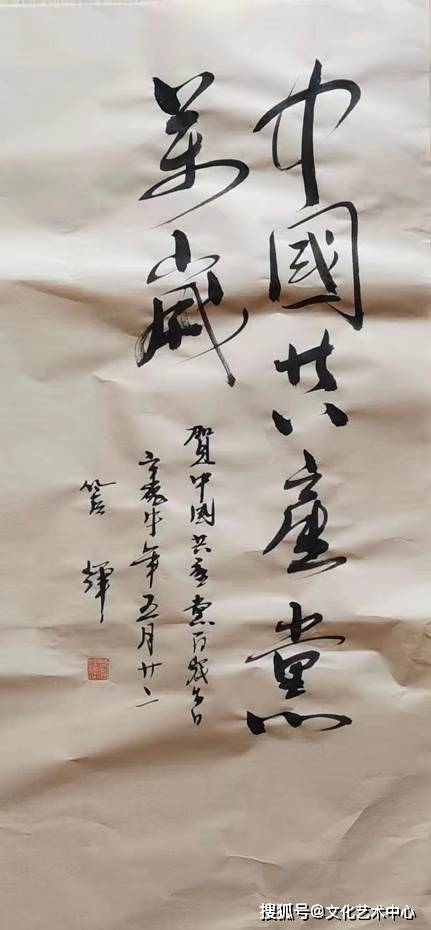 中國共產黨
萬歲
賀中國共產黨百歲生日
辛丑牛年五月廿二
輝
搜狐号@文化艺术中心